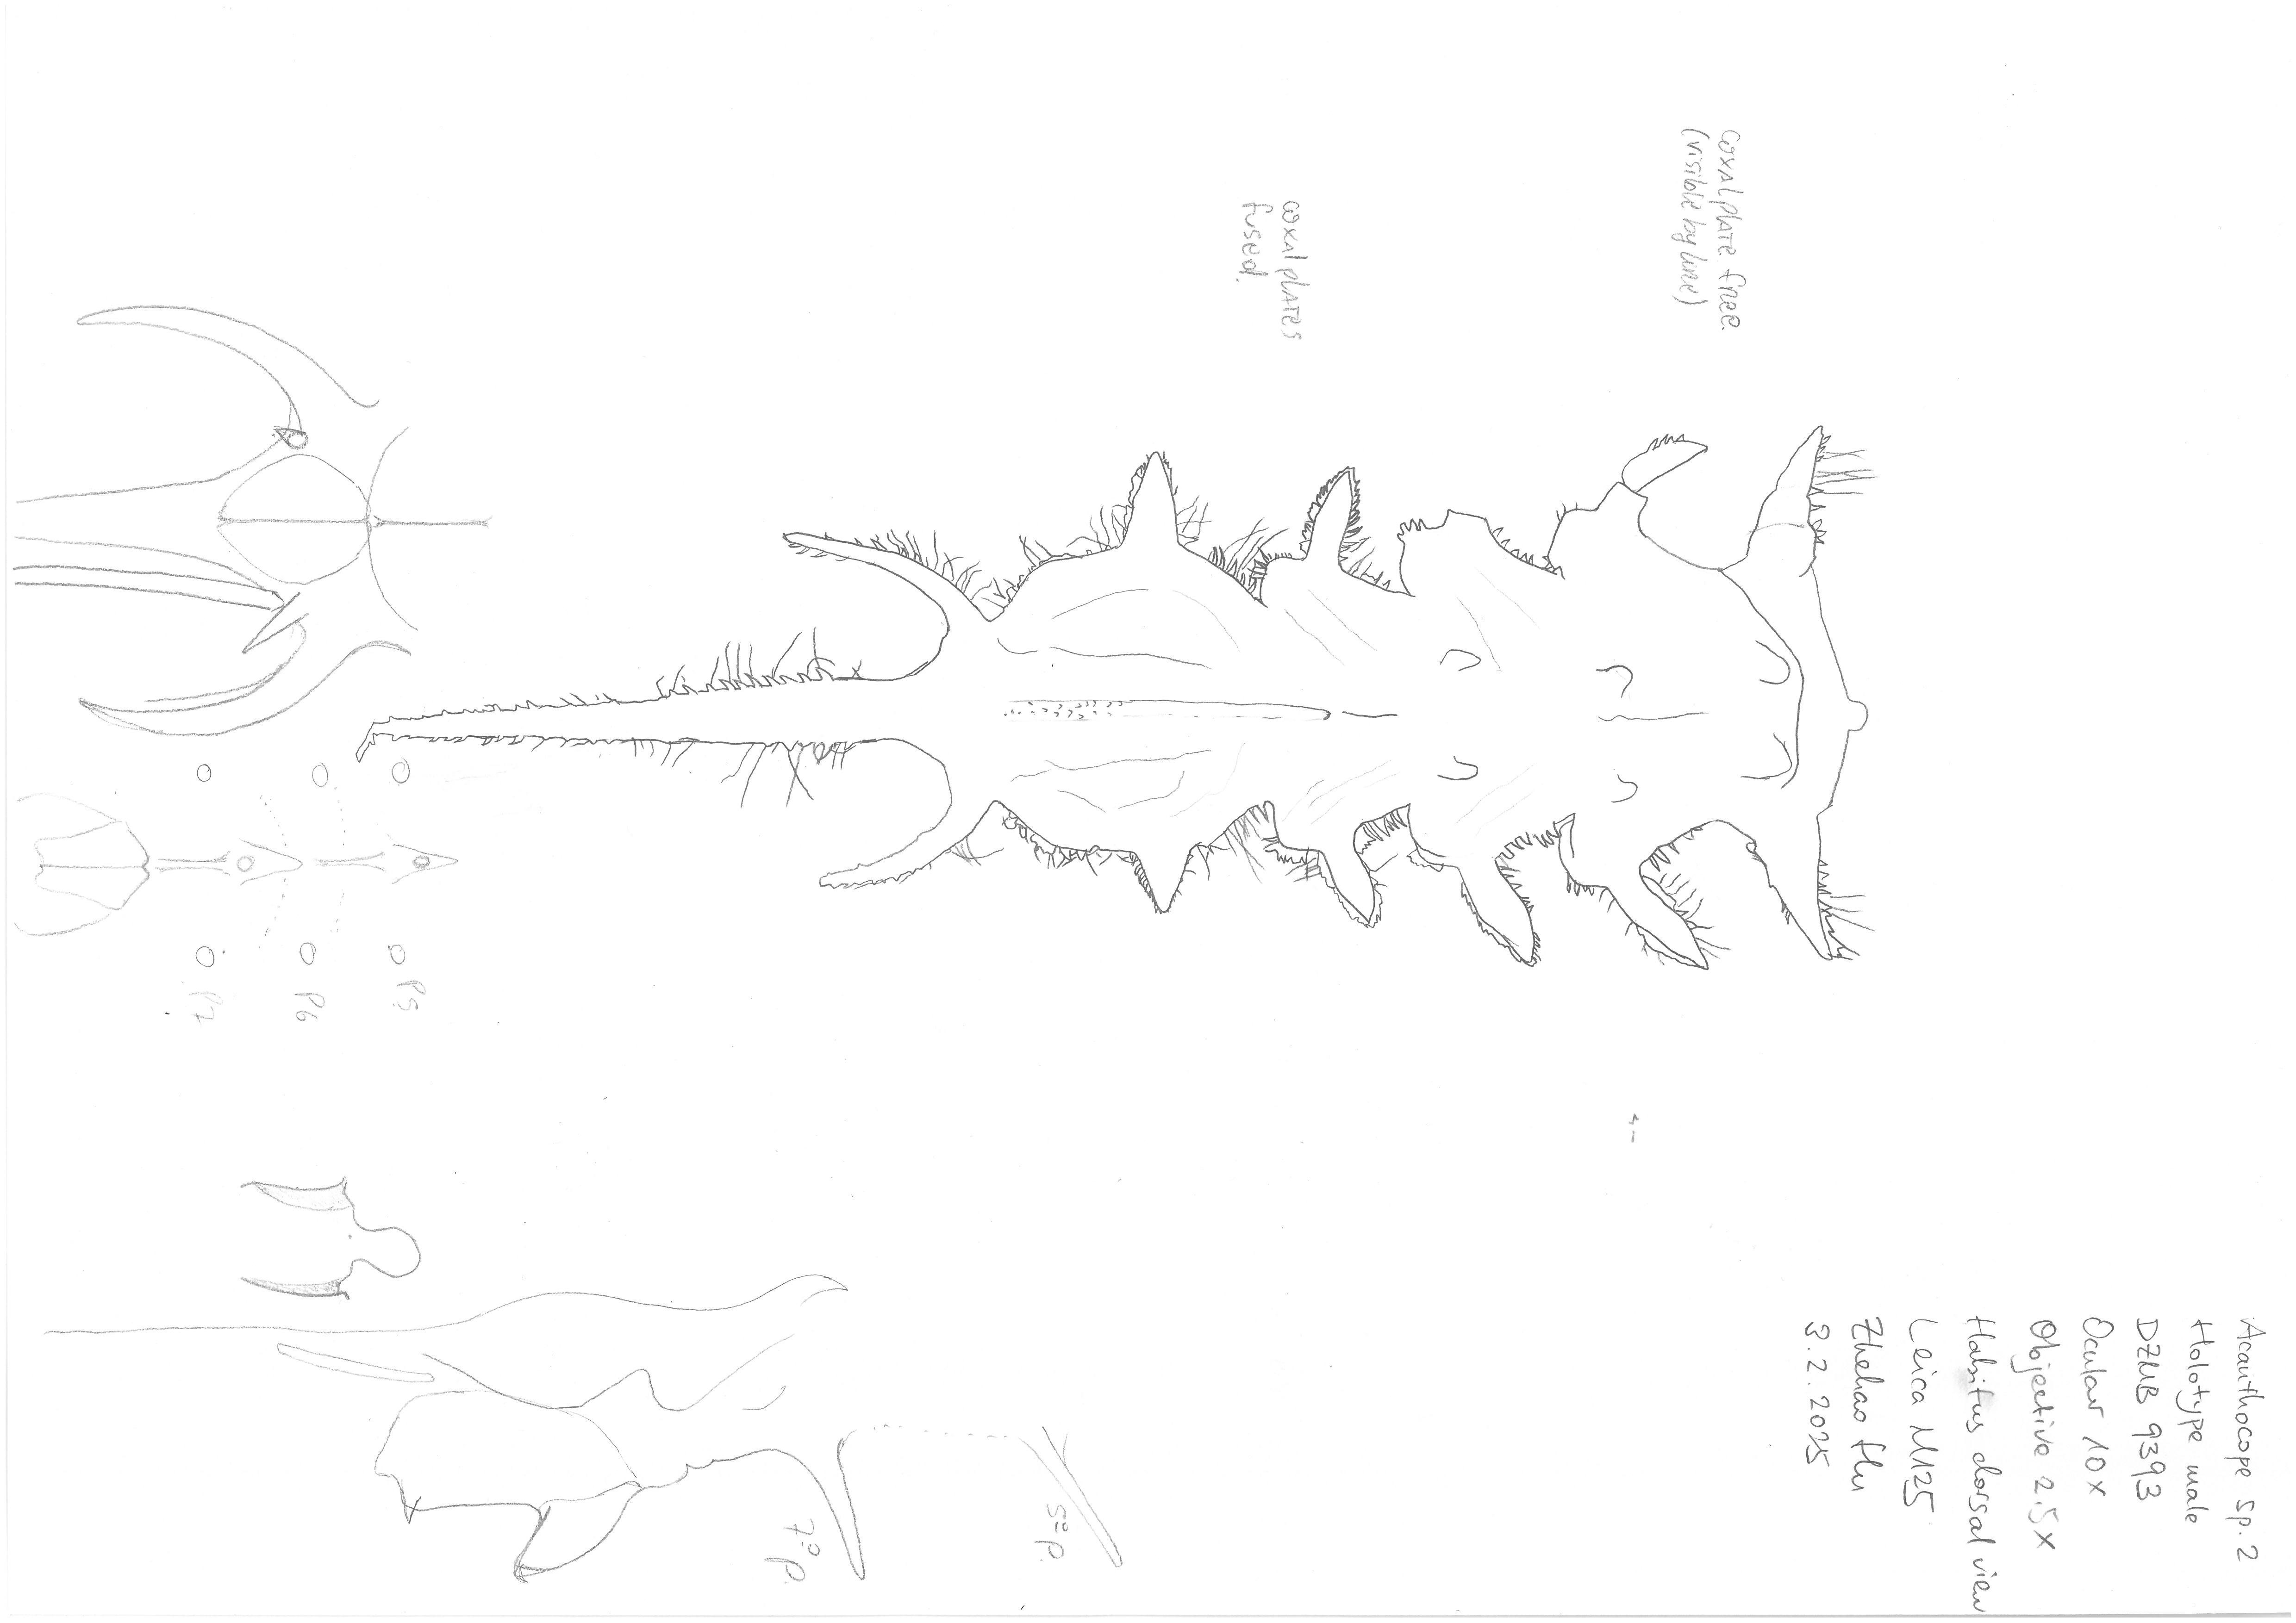 Acanthocope sp. 2
Holotype male
DZMB 9393
Ocular 10x
Objective 2.5x
Habitus dorsal view
Leica M125
Zhehao Hu
3.2.2025
coxalplate free
(visible by line)
coxalplates
fused.
5º p.
7º p.
P5
P6
P7